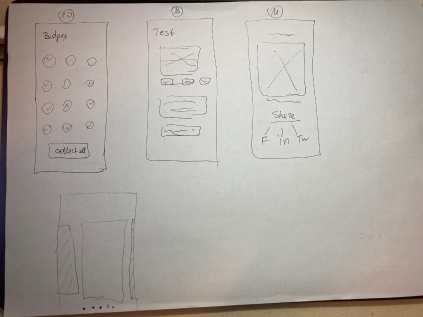 10
Badges
Collect all
8
Test
11
Share
F in Tw